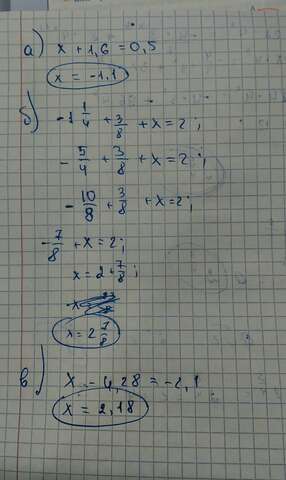 а) x + 1,6 = 0,5
x = -1,1
б) -1 1/4 + 3/8 + x = 2 ;
- 5/4 + 3/8 + x = 2 ;
- 10/8 + 3/8 + x = 2 ;
- 7/8 + x = 2 ;
x = 2 + 7/8 ;
x = 2 7/8
в) x - 4,28 = -2,1
x = 2,18